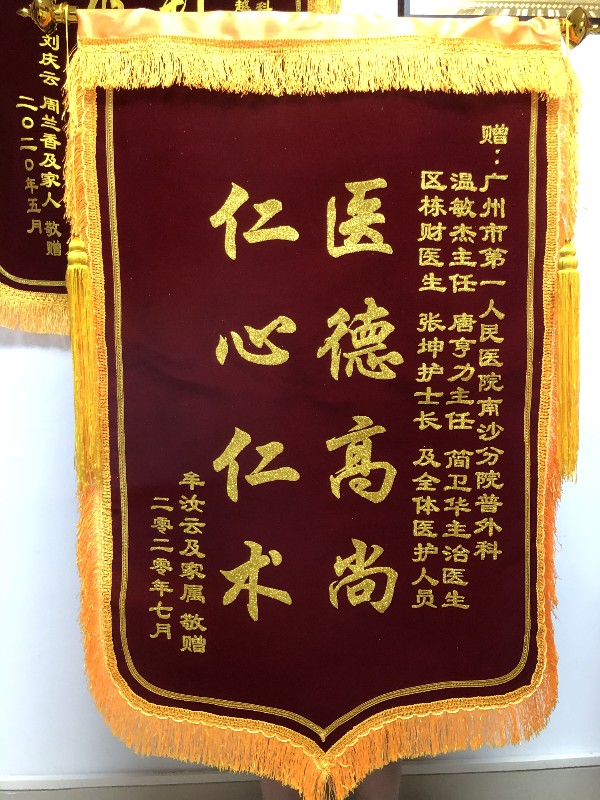 赠：广州市第一人民医院南沙分院普外科
温敏杰主任 唐亨力主任 简卫华主治医生
区栋财医生 张坤护士长 及全体医护人员
医德高尚
仁心仁术
牟汝云及家属 敬赠
二零二零年七月
刘庆云 周兰香及家人 敬赠
二〇二〇年五月